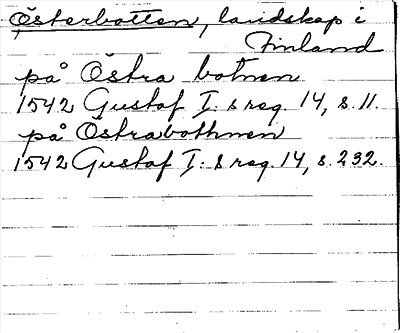 Österbotten, landskap i
Finland
på Östra botnen
1542 Gustaf I:s reg. 14, s. 11.
på Östrabothnen
1542 Gustaf I:s reg. 14, s. 232.